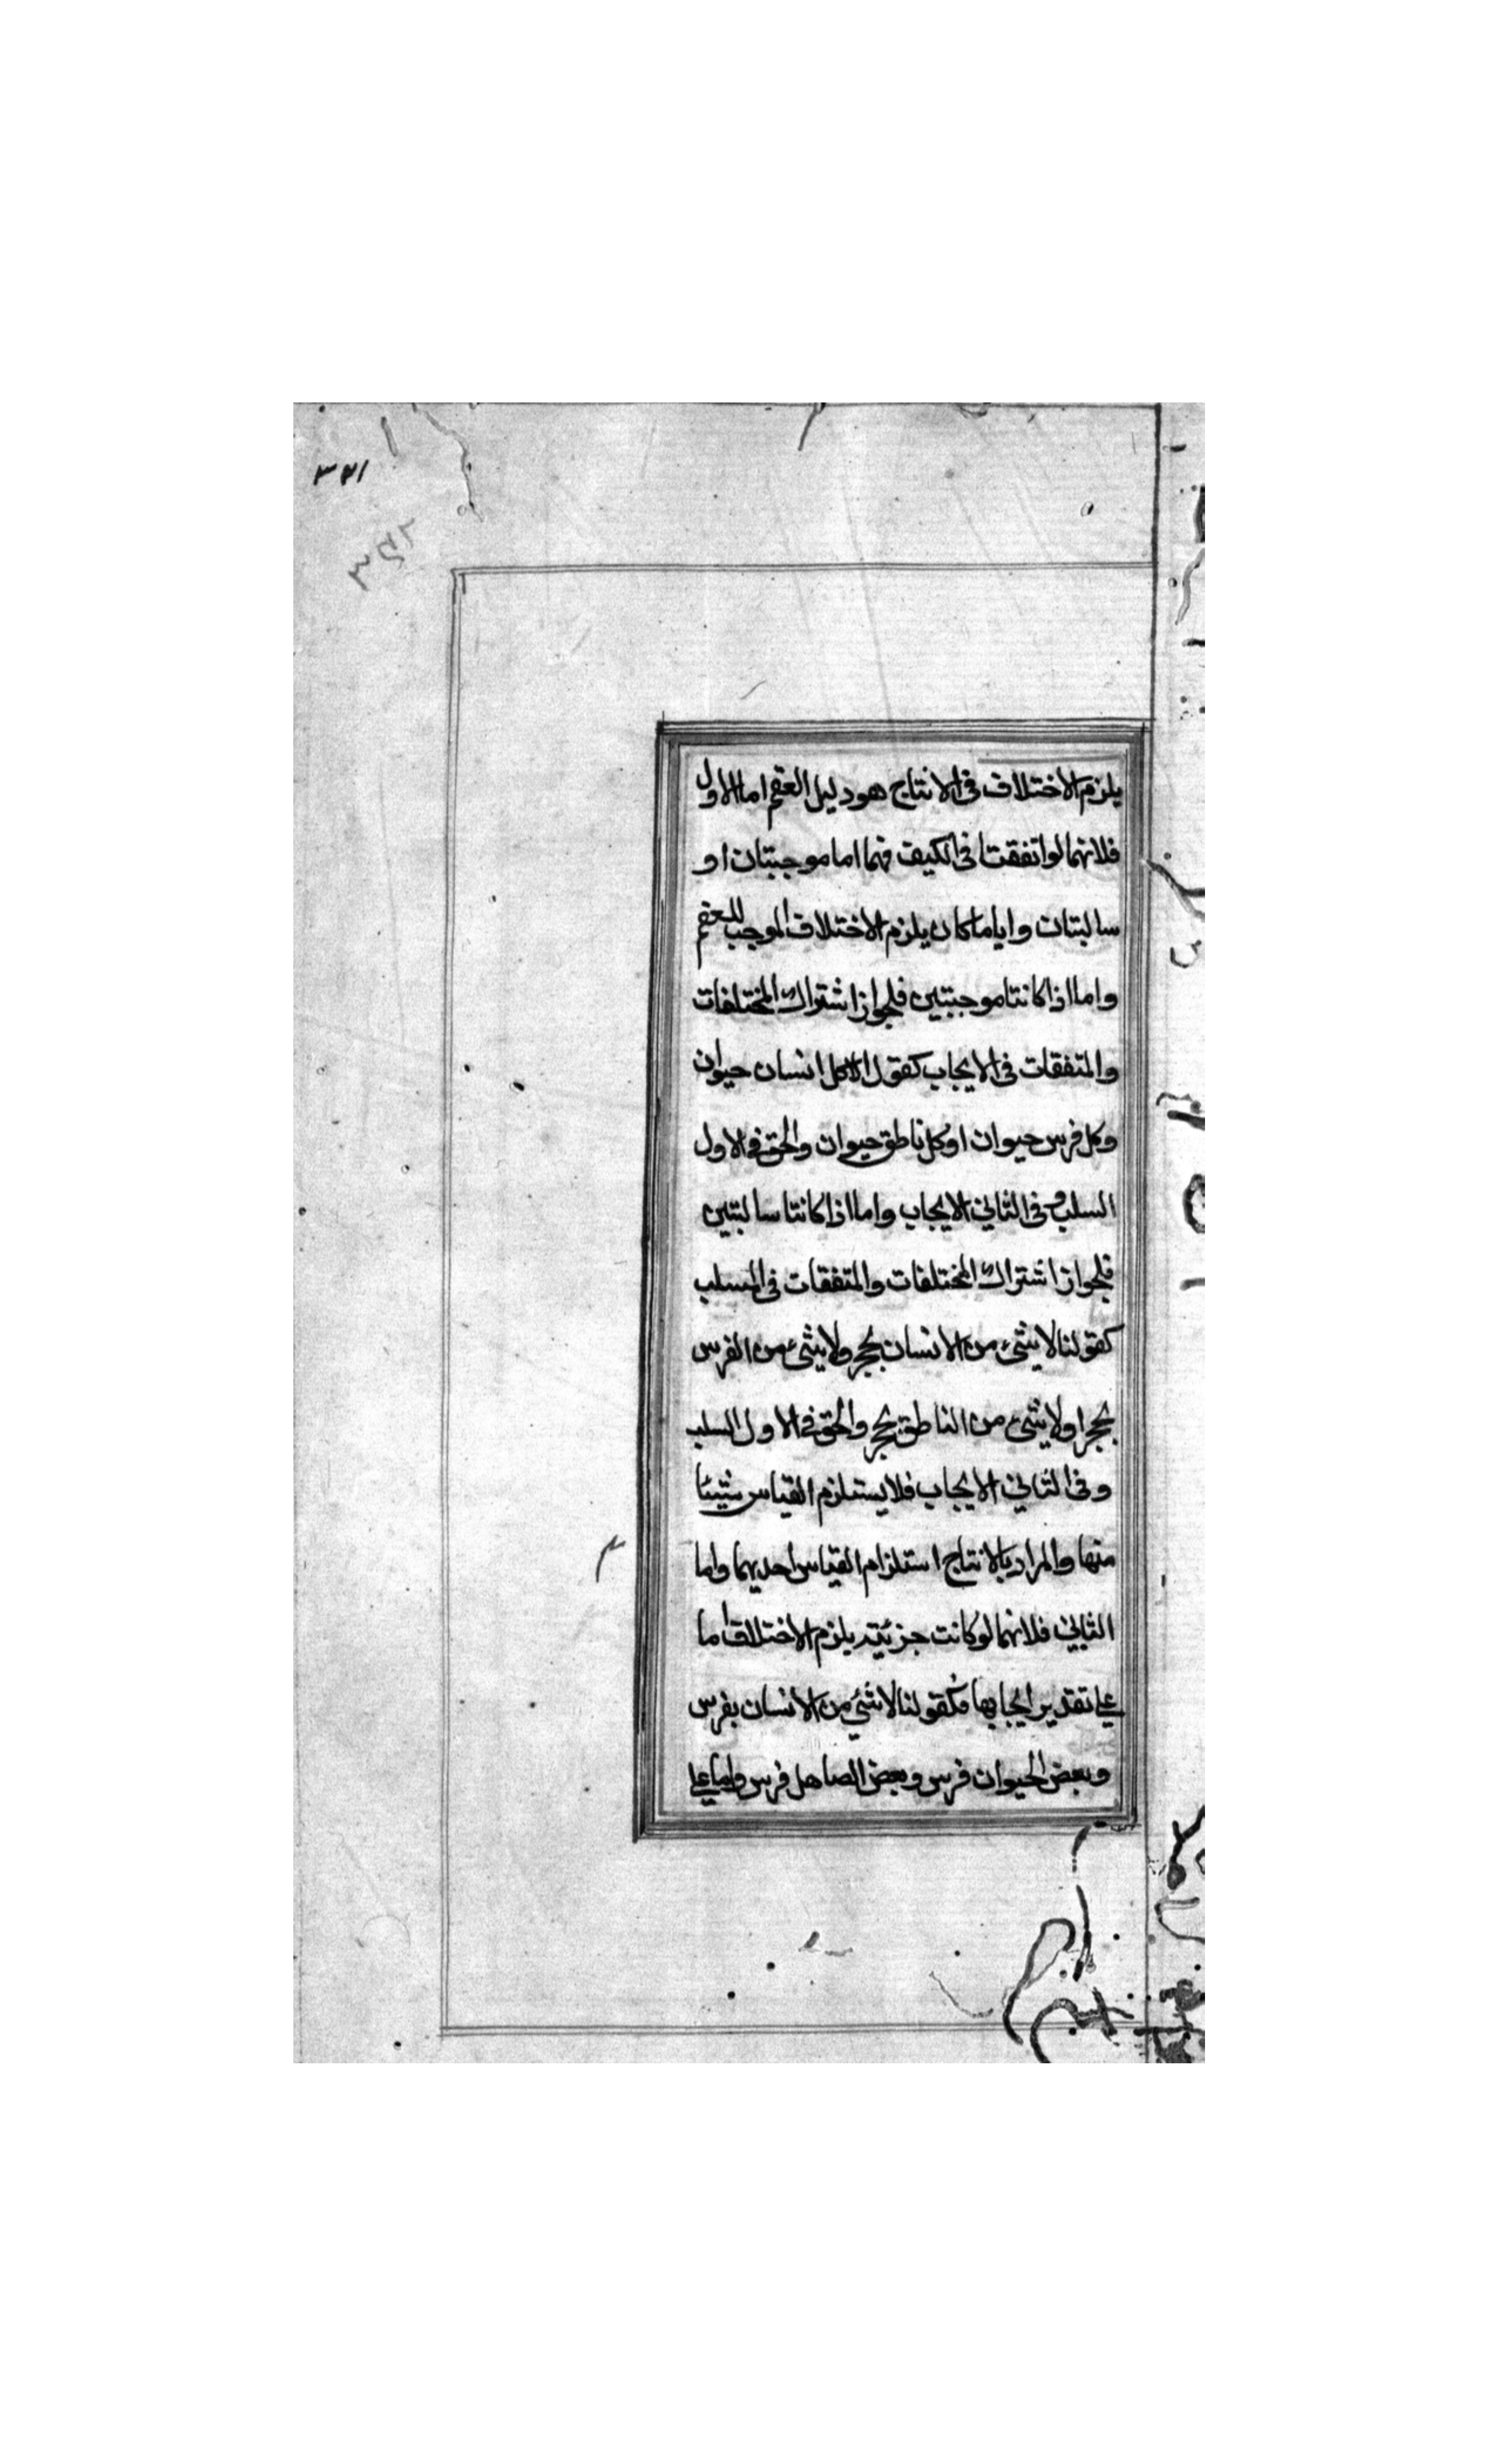 ٣٢١
٣٥٢
يلزم الاختلاف فى الانتاج هو دليل العقم اما الاول
فلانهما لو اتفقتا فى الكيف فهما اما موجبتان او
سالبتان وايا ما كان يلزم الاختلاف الموجب للعقم
واما اذا كانتا موجبتين فلجواز اشتراك المختلفات
والمتفقات فى الايجاب كقولنا كل انسان حيوان
وكل فرس حيوان او كل ناطق حيوان والحق فى الاول
السلب وفى الثانى الايجاب واما اذا كانتا سالبتين
فلجواز اشتراك المختلفات والمتفقات فى السلب
كقولنا لا شئ من الانسان بحجر ولا شئ من الفرس
بحجر او لا شئ من الناطق بحجر والحق فى الاول السلب
وفى الثانى الايجاب فلا يستلزم القياس شيئا
منها والمراد بالانتاج استلزام القياس احديهما واما
الثانى فلانهما لو كانت جزئية يلزم الاختلاف اما
على تقدير ايجابها فكقولنا لا شئ من الانسان بفرس
وبعض الحيوان فرس وبعض الصاهل فرس واما على